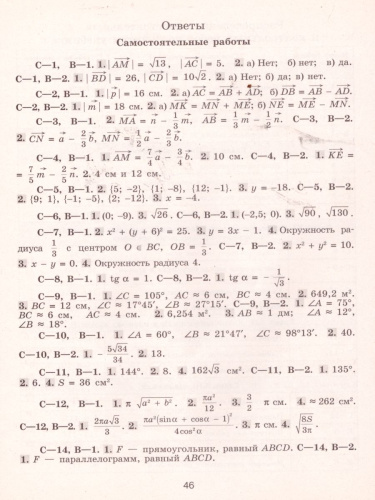 Ответы
Самостоятельные работы
С—1, В—1. 1. |AM| = √13, |AC| = 5. 2. а) Нет; б) нет; в) да.
С—1, В—2. 1. |BD| = 26, |CD| = 10√2. 2. а) Нет; б) да; в) нет.
С—2, В—1. 1. |p| = 16 см. 2. а) AC = AB + AD; б) DB = AB − AD.
С—2, В—2. 1. |m| = 18 см. 2. а) MK = MN + ME; б) NE = ME − MN.
С—3, В—1. 2. MA = n − 1/3 m, AB = 1/3 m − 1/2 n. С—3, В—2.
2. CN = a − 2/3 b, MN = 1/2 a − 2/3 b.
С—4, В—1. 1. AM = 7/4 a − 3/4 b. 2. 10 см. С—4, В—2. 1. KE =
= 7/5 m − 2/5 n. 2. 4 см и 12 см.
С—5, В—1. 2. {5; −2}, {1; −8}, {12; −1}. 3. y = −18. С—5, В—2.
2. {9; 1}, {−1; −5}, {2; −12}. 3. x = −4.
С—6, В—1. 1. (0; −9). 3. √26. С—6, В—2. 1. (−2,5; 0). 3. √90, √130.
С—7, В—1. 2. x² + (y + 6)² = 25. 3. y = 3x − 1. 4. Окружность ра-
диуса 1/3 с центром O ∈ BC, OB = 1/3. С—7, В—2. 2. x² + y² = 10.
3. x − y = 0. 4. Окружность радиуса 4.
С—8, В—1. 1. tg α = 1. С—8, В—2. 1. tg α = − 1/√3.
С—9, В—1. 1. ∠C = 105°, AC ≈ 6 см, BC ≈ 4 см. 2. 649,2 м².
3. BC = 12 см, ∠C ≈ 17°45′, ∠B ≈ 27°15′. С—9, В—2. 1. ∠A = 75°,
BC ≈ 6 см, AC ≈ 4 см. 2. 6,254 м². 3. AB ≈ 1 дм; ∠A ≈ 12°,
∠B ≈ 18°.
С—10, В—1. 1. ∠A = 60°, ∠B ≈ 21°47′, ∠C ≈ 98°13′. 2. 40.
С—10, В—2. 1. − 5√34/34. 2. 13.
С—11, В—1. 1. 144°. 2. 8. 4. 162√3 см². С—11, В—2. 1. 135°.
2. 6. 4. S = 36 см².
С—12, В—1. 1. π √(a² + b²). 2. πa²/12. 3. 3/2 π см. 4. ≈ 262 см².
С—12, В—2. 1. 2πa√3/3. 2. πa²(sinα + cosα − 1)²/4cos²α. 3. π см. 4. √(8S/3π)
С—14, В—1. 1. F — прямоугольник, равный ABCD. С—14, В—2.
1. F — параллелограмм, равный ABCD.
46